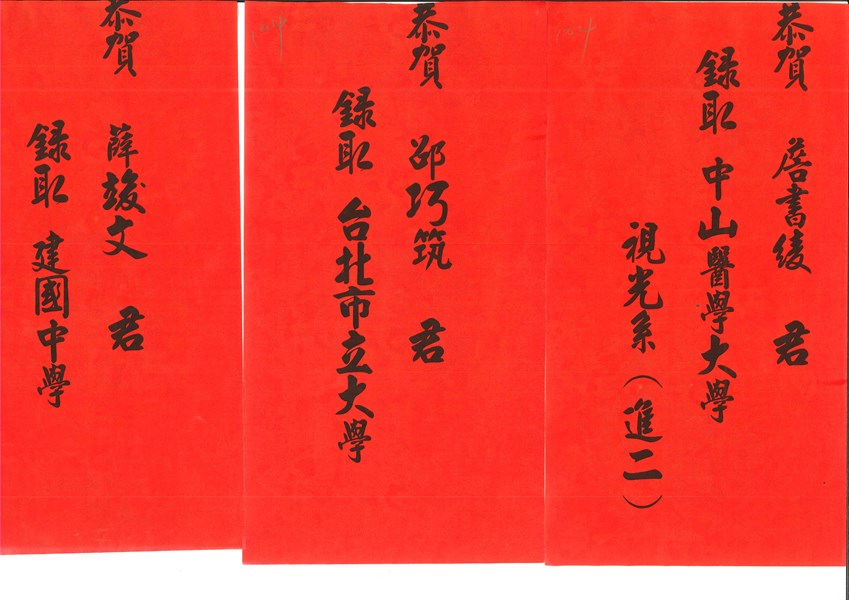 恭賀 詹書綾 君
録取 中山醫學大學
視光系（進二）
104
恭賀 邵巧筑 君
録取 台北市立大學
104
恭賀 薛竣文 君
録取 建國中學